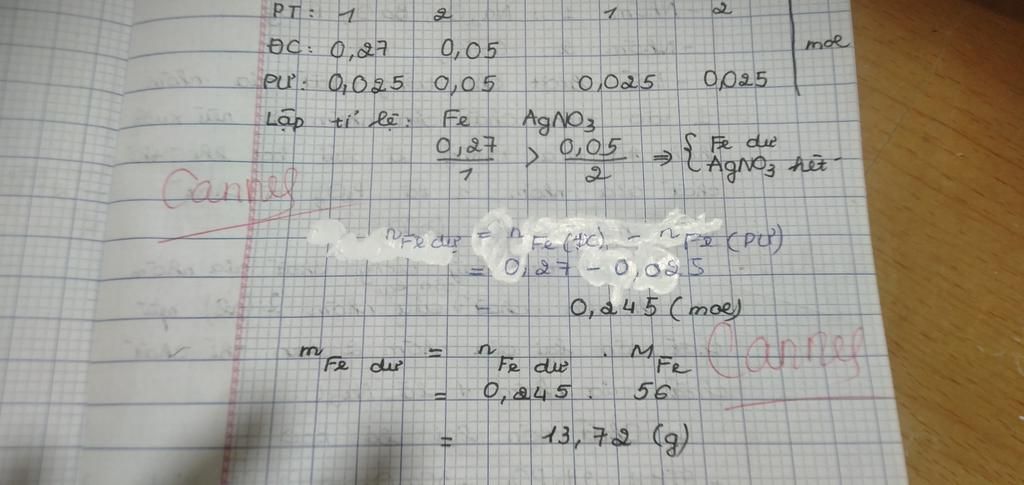 PT: 1 2 1 2
ĐC: 0,27 0,05
PƯ: 0,025 0,05 0,025 0,025
mol
Lập tỉ lệ: Fe AgNO3
0,27/1 > 0,05/2 ⇒ { Fe dư
AgNO3 hết
Cannes
nFe dư = nFe(ĐC) - nFe (PƯ)
= 0,27 - 0,025
0,245 (mol)
mFe dư = nFe dư . MFe
Cannes
= 0,245 . 56
= 13,72 (g)